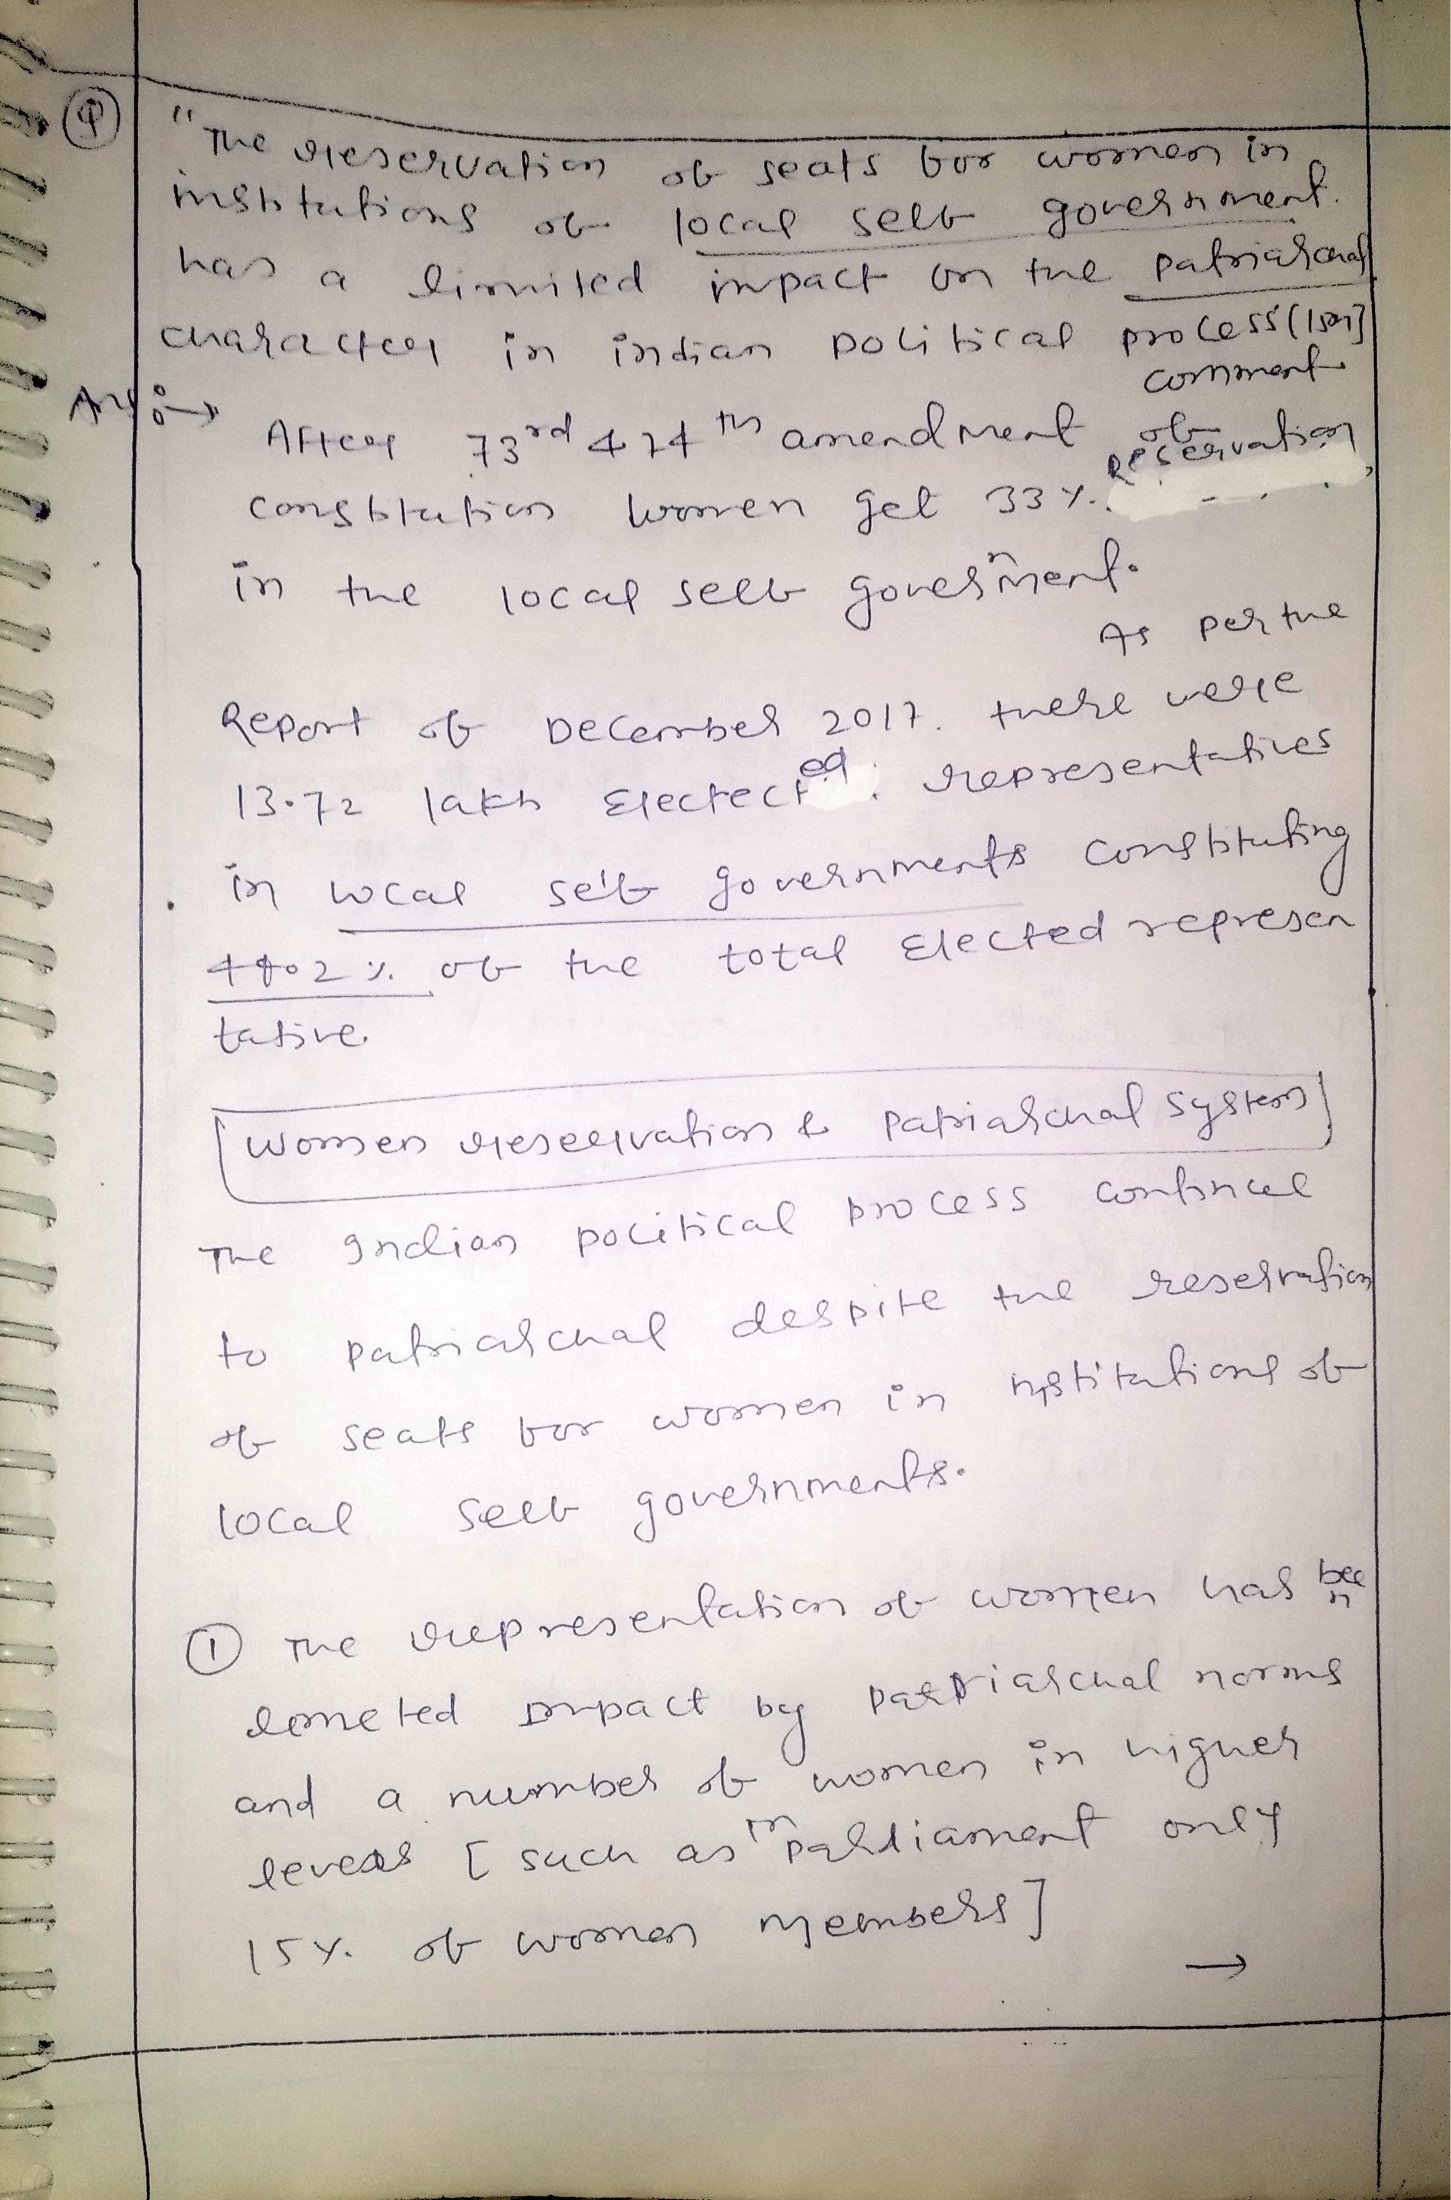 Q "The reservation of seats for women in
institutions of local self government.
has a limited impact on the patriarchal
character in indian political process (15m]
comment
Ans:→ After 73rd & 74th amendment of
constitution women get 33%. Reservation
in the local self government.
As per the
Report of December 2017. there were
13.72 lakh Elected representatives
in local self governments constituting
44.2%. of the total Elected represen
tative.
Women reservation & Patriarchal System
The Indian political process continue
to patriarchal despite the reservation
of seats for women in institutions of
local self governments.
① The representation of women has been
limeted impact by patriarchal norms
and a number of women in higher
levels [ such as in parliament only
15%. of women members]
→